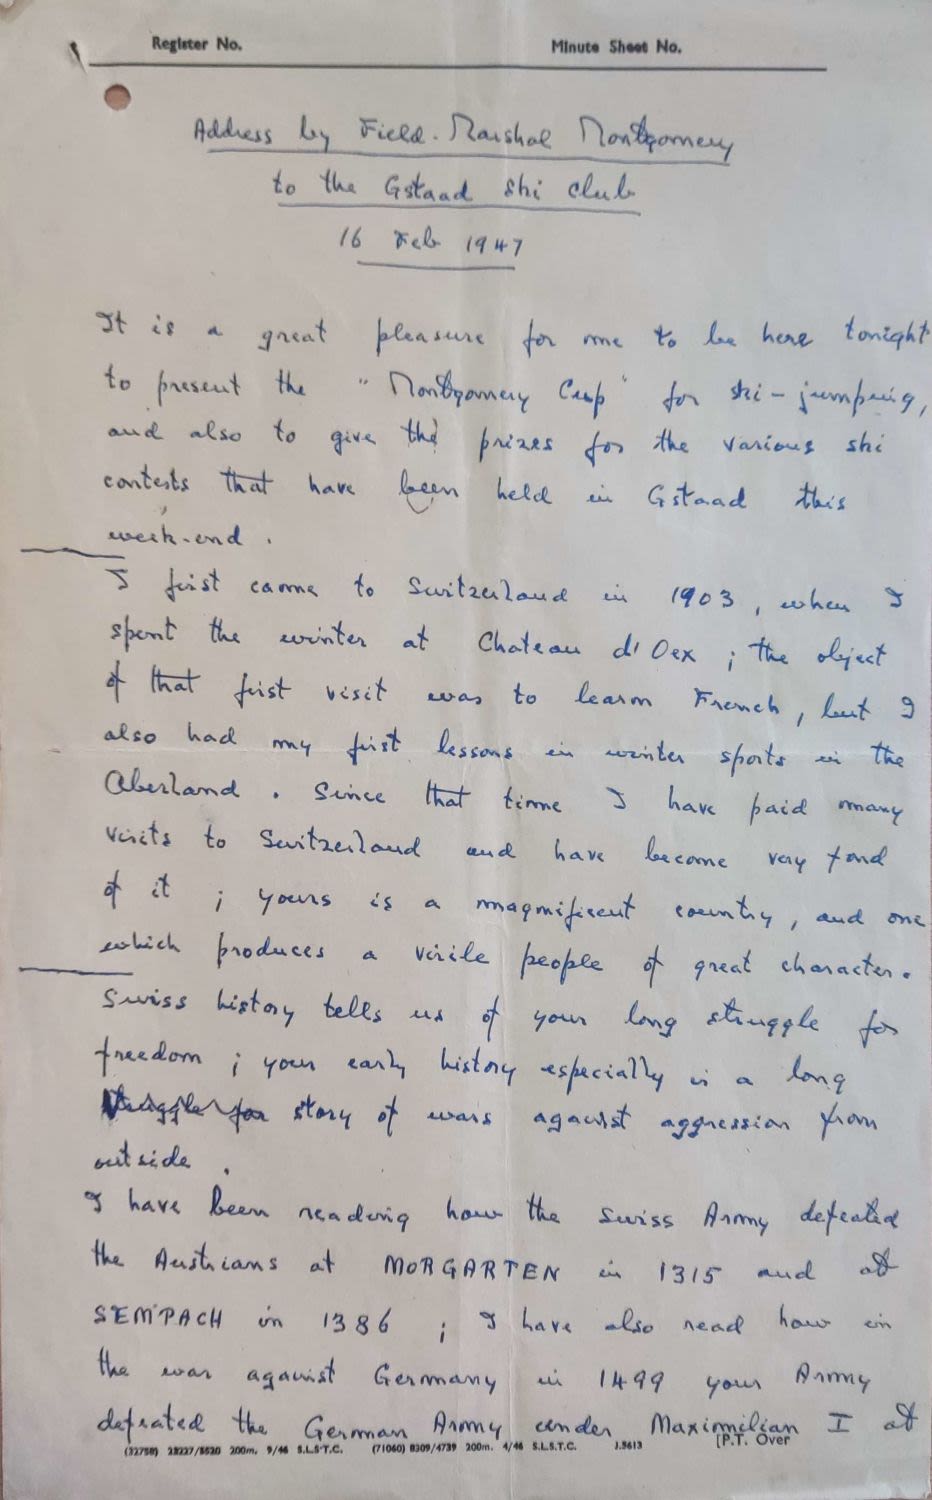 Register No. Minute Sheet No.
Address by Field-Marshal Montgomery
to the Gstaad Ski Club
16 Feb 1947
It is a great pleasure for me to be here tonight
to present the "Montgomery Cup" for ski-jumping,
and also to give the prizes for the various ski
contests that have been held in Gstaad this
week-end.
I first came to Switzerland in 1903, when I
spent the winter at Chateau d'Oex; the object
of that first visit was to learn French, but I
also had my first lessons in winter sports in the
Oberland. Since that time I have paid many
visits to Switzerland and have become very fond
of it; yours is a magnificent country, and one
which produces a virile people of great character.
Swiss history tells us of your long struggle for
freedom; your early history especially is a long
struggle for story of wars against aggression from
outside.
I have been reading how the Swiss Army defeated
the Austrians at MORGARTEN in 1315 and at
SEMPACH in 1386; I have also read how in
the war against Germany in 1499 your Army
defeated the German Army under Maximilian I at
(32758) 28227/8520 200m. 9/46 S.L.S.T.C. (71060) 8309/4739 200m. 4/46 S.L.S.T.C. J.5613 [P.T. Over